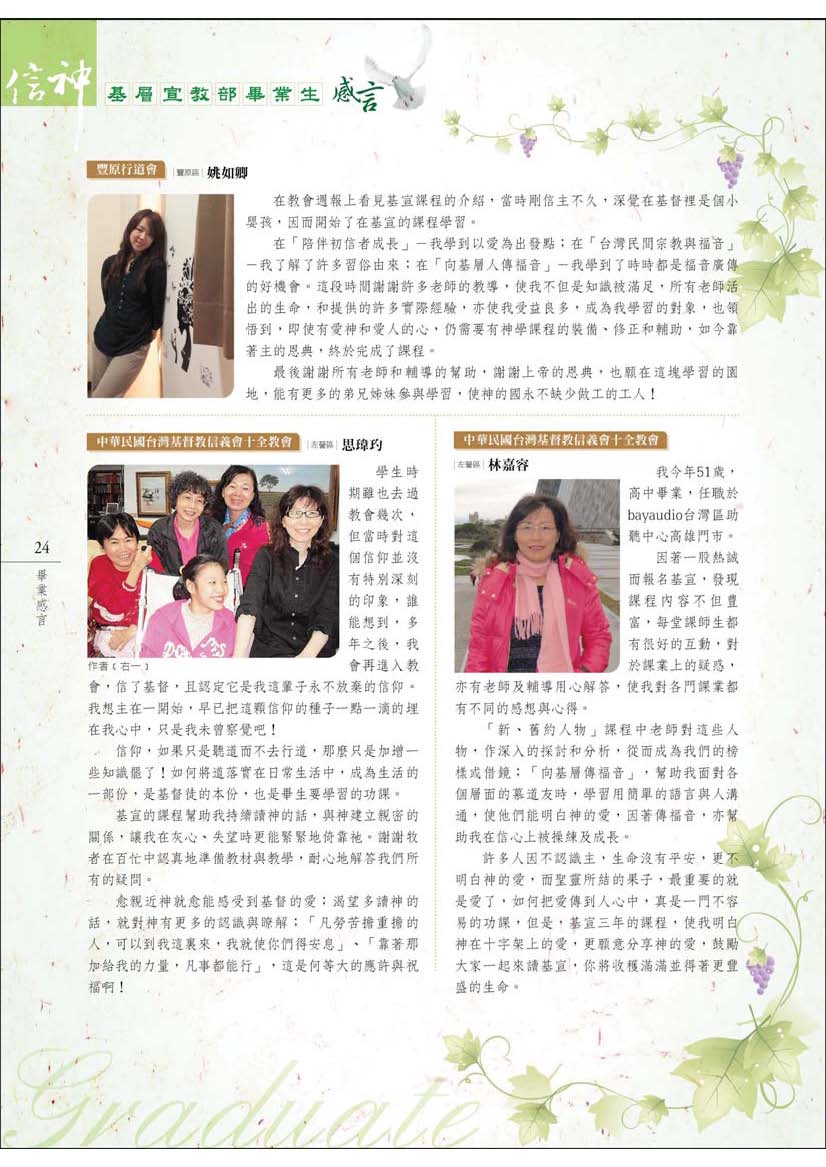 信神
基層宣教部畢業生感言
豐原行道會
豐原區
姚如卿
在教會週報上看見基宣課程的介紹，當時剛信主不久，深覺在基督裡是個小
嬰孩，因而開始了在基宣的課程學習。
在「陪伴初信者成長」－我學到以愛為出發點；在「台灣民間宗教與福音」
－我了解了許多習俗由來；在「向基層人傳福音」－我學到了時時都是福音廣傳
的好機會。這段時間謝謝許多老師的教導，使我不但是知識被滿足，所有老師活
出的生命，和提供的許多實際經驗，亦使我受益良多，成為我學習的對象，也領
悟到，即使有愛神和愛人的心，仍需要有神學課程的裝備、修正和輔助，如今靠
著主的恩典，終於完成了課程。
最後謝謝所有老師和輔導的幫助，謝謝上帝的恩典，也願在這塊學習的園
地，能有更多的弟兄姊妹參與學習，使神的國永不缺少做工的工人！
中華民國台灣基督教信義會十全教會
左營區
思瑋玓
學生時
期雖也去過
教會幾次，
但當時對這
個信仰並沒
有特別深刻
的印象，誰
能想到，多
年之後，我
會再進入教
作者﹝右一﹞
會，信了基督，且認定它是我這輩子永不放棄的信仰。
我想主在一開始，早已把這顆信仰的種子一點一滴的埋
在我心中，只是我未曾察覺吧！
信仰，如果只是聽道而不去行道，那麼只是加增一
些知識罷了！如何將道落實在日常生活中，成為生活的
一部份，是基督徒的本份，也是畢生要學習的功課。
基宣的課程幫助我持續讀神的話，與神建立親密的
關係，讓我在灰心、失望時更能緊緊地倚靠祂。謝謝牧
者在百忙中認真地準備教材與教學，耐心地解答我們所
有的疑問。
愈親近神就愈能感受到基督的愛；渴望多讀神的
話，就對神有更多的認識與瞭解；「凡勞苦擔重擔的
人，可以到我這裏來，我就使你們得安息」、「靠著那
加給我的力量，凡事都能行」，這是何等大的應許與祝
福啊！
中華民國台灣基督教信義會十全教會
左營區
林嘉容
我今年51歲，
高中畢業，任職於
bayaudio台灣區助
聽中心高雄門市。
因著一股熱誠
而報名基宣，發現
課程內容不但豐
富，每堂課師生都
有很好的互動，對
於課業上的疑惑，
亦有老師及輔導用心解答，使我對各門課業都
有不同的感想與心得。
「新、舊約人物」課程中老師對這些人
物，作深入的探討和分析，從而成為我們的榜
樣或借鏡；「向基層傳福音」，幫助我面對各
個層面的慕道友時，學習用簡單的語言與人溝
通，使他們能明白神的愛，因著傳福音，亦幫
助我在信心上被操練及成長。
許多人因不認識主，生命沒有平安，更不
明白神的愛，而聖靈所結的果子，最重要的就
是愛了，如何把愛傳到人心中，真是一門不容
易的功課，但是，基宣三年的課程，使我明白
神在十字架上的愛，更願意分享神的愛，鼓勵
大家一起來讀基宣，你將收穫滿滿並得著更豐
盛的生命。
24
畢業感言
Graduate